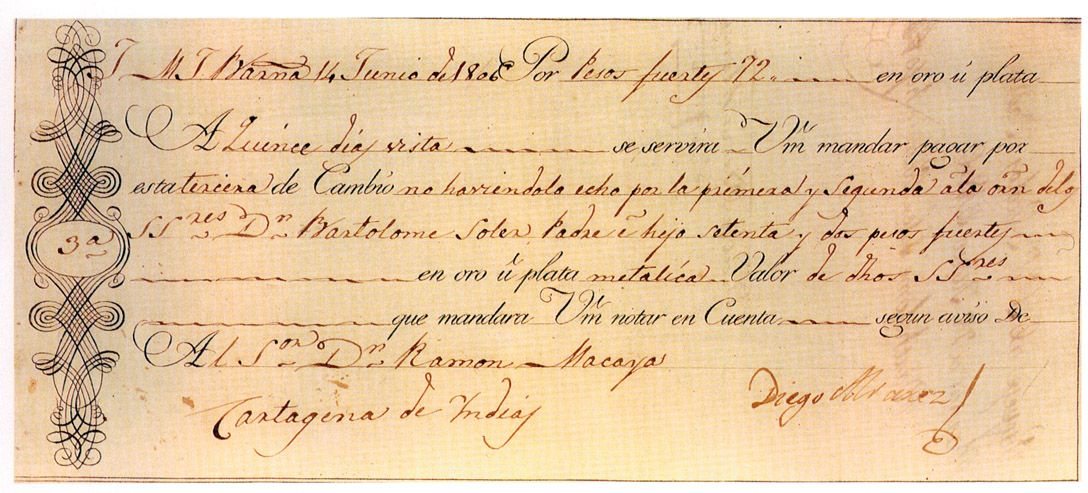 J M J Barna 14 Junio de 1806 Por Pesos fuertes 72 en oro ú plata
A Quince días vista se servirá Vm mandar pagar por
esta tercera de Cambio no haviendolo echo por la primera y Segunda â la orn delos
3a SSres Dn Bartolome Soler Padre é hijo setenta y dos pesos fuertes
en oro ú plata metalica Valor de dhos SSres
que mandara Vm notar en Cuenta segun aviso De
Al Sor Dn Ramon Macaya
Cartagena de Yndias
Diego Alvarez